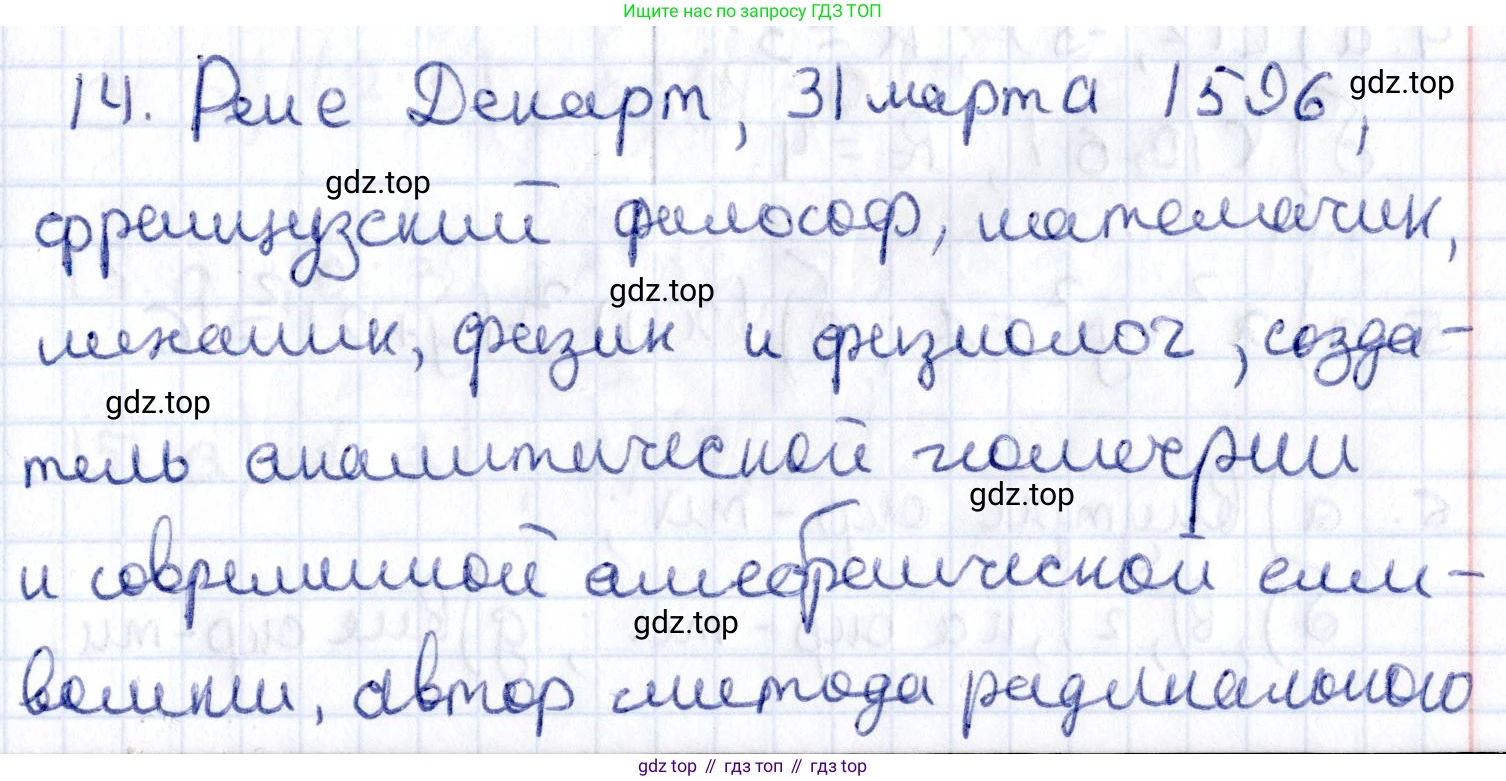 Ищите нас по запросу ГДЗ ТОП
14. Рене Декарт, 31 марта 1596,
gdz.top
gdz.top
французский философ, математик,
gdz.top
механик, физик и физиолог, созда-
gdz.top
тель аналитической геометрии
gdz.top
и современной алгебраической сим-
gdz.top
волики, автор метода радикального
gdz top // гдз топ // гдз top